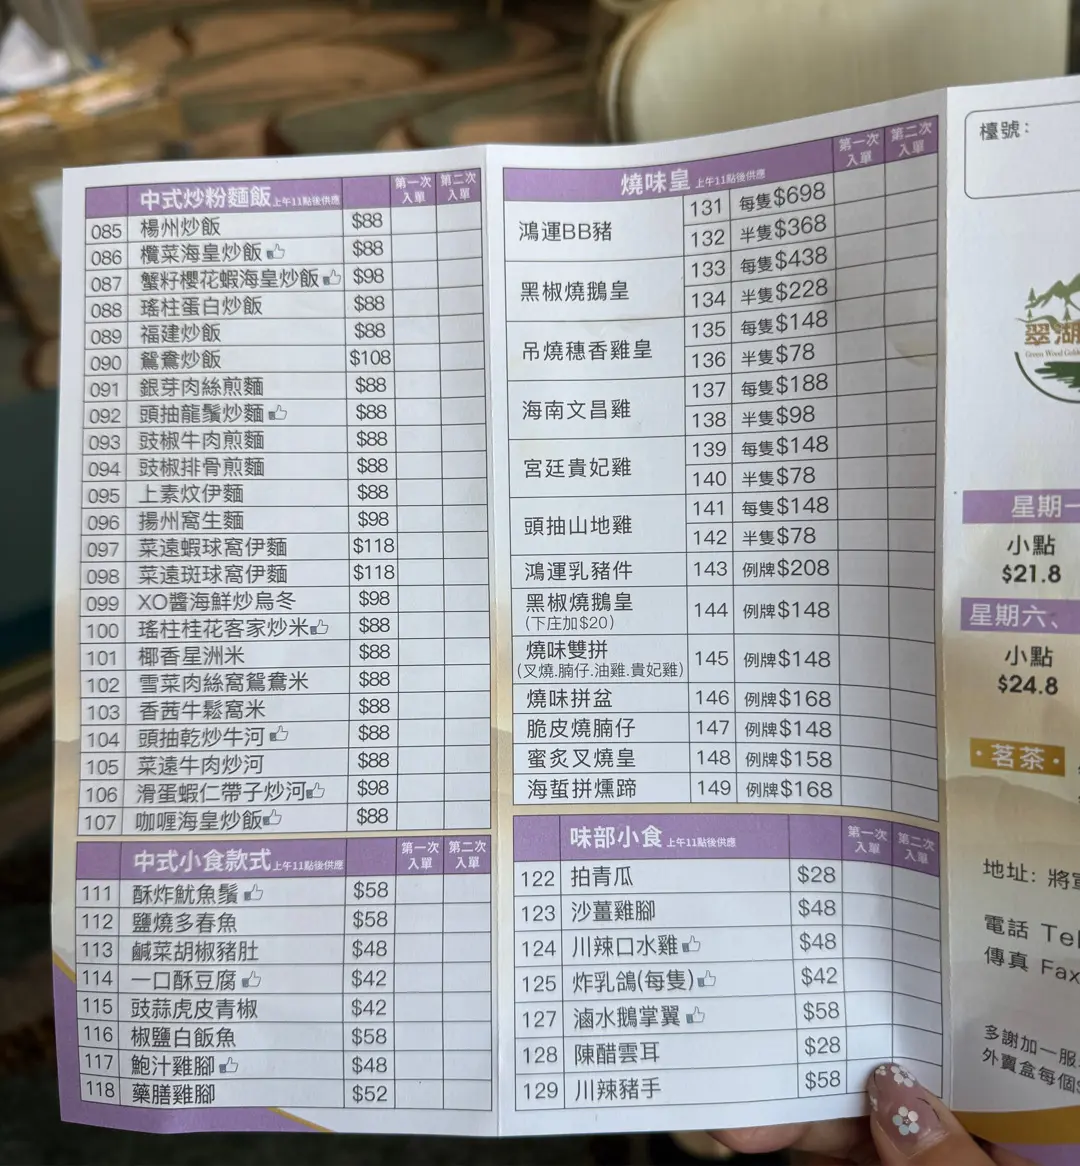 中式炒粉麵飯 上午11點後供應 第一次入單 第二次入單
085 楊州炒飯 $88
086 欖菜海皇炒飯 $88
087 蟹籽櫻花蝦海皇炒飯 $98
088 瑤柱蛋白炒飯 $88
089 福建炒飯 $88
090 鴛鴦炒飯 $108
091 銀芽肉絲煎麵 $88
092 頭抽龍鬚炒麵 $88
093 豉椒牛肉煎麵 $88
094 豉椒排骨煎麵 $88
095 上素炆伊麵 $88
096 揚州窩生麵 $98
097 菜遠蝦球窩伊麵 $118
098 菜遠斑球窩伊麵 $118
099 XO醬海鮮炒烏冬 $98
100 瑤柱桂花客家炒米 $88
101 椰香星洲米 $88
102 雪菜肉絲窩鴛鴦米 $88
103 香茜牛鬆窩米 $88
104 頭抽乾炒牛河 $88
105 菜遠牛肉炒河 $88
106 滑蛋蝦仁帶子炒河 $98
107 咖喱海皇炒飯 $88
中式小食款式 上午11點後供應 第一次入單 第二次入單
111 酥炸魷魚鬚 $58
112 鹽燒多春魚 $58
113 鹹菜胡椒豬肚 $48
114 一口酥豆腐 $42
115 豉蒜虎皮青椒 $42
116 椒鹽白飯魚 $58
117 鮑汁雞腳 $48
118 藥膳雞腳 $52
燒味皇 上午11點後供應 第一次入單 第二次入單
鴻運BB豬 131 每隻$698
132 半隻$368
黑椒燒鵝皇 133 每隻$438
134 半隻$228
吊燒穗香雞皇 135 每隻$148
136 半隻$78
海南文昌雞 137 每隻$188
138 半隻$98
宮廷貴妃雞 139 每隻$148
140 半隻$78
頭抽山地雞 141 每隻$148
142 半隻$78
鴻運乳豬件 143 例牌$208
黑椒燒鵝皇 144 例牌$148
(下庄加$20)
燒味雙拼 145 例牌$148
(叉燒.腩仔.油雞.貴妃雞)
燒味拼盆 146 例牌$168
脆皮燒腩仔 147 例牌$148
蜜炙叉燒皇 148 例牌$158
海蜇拼燻蹄 149 例牌$168
味部小食 上午11點後供應 第一次入單 第二次入單
122 拍青瓜 $28
123 沙薑雞腳 $48
124 川辣口水雞 $48
125 炸乳鴿(每隻) $42
127 滷水鵝掌翼 $58
128 陳醋雲耳 $28
129 川辣豬手 $58
檯號：
翠湖
Green Wood
星期一
小點
$21.8
星期六、
小點
$24.8
·茗茶·
地址: 將
電話 Tel
傳真 Fax
多謝加一服
外賣盒每個